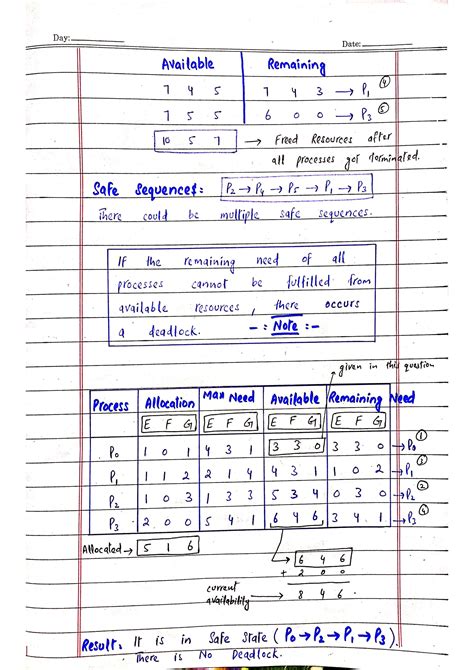 Day: Date:
Available Remaining
7 4 5 7 4 3 → P1 ④
7 5 5 6 0 0 → P3 ⑤
10 5 7 → Freed Resources after
all processes got terminated.
Safe Sequences: P2 → P4 → P5 → P1 → P3
There could be multiple safe sequences.
If the remaining need of all
processes cannot be fulfilled from
available resources, there occurs
a deadlock. -: Note :-
given in this question
Process Allocation Max Need Available Remaining Need
E F G E F G E F G E F G
P0 1 0 1 4 3 1 3 3 0 3 3 0 → P0 ①
P1 1 1 2 2 1 4 4 3 1 1 0 2 → P1 ③
P2 1 0 3 1 3 3 5 3 4 0 3 0 → P2 ②
P3 2 0 0 5 4 1 6 4 6 3 4 1 → P3 ④
Allocated → 5 1 6
6 4 6
+ 2 0 0
current availability → 8 4 6
Result: It is in Safe State (P0 → P2 → P1 → P3).
There is No Deadlock.